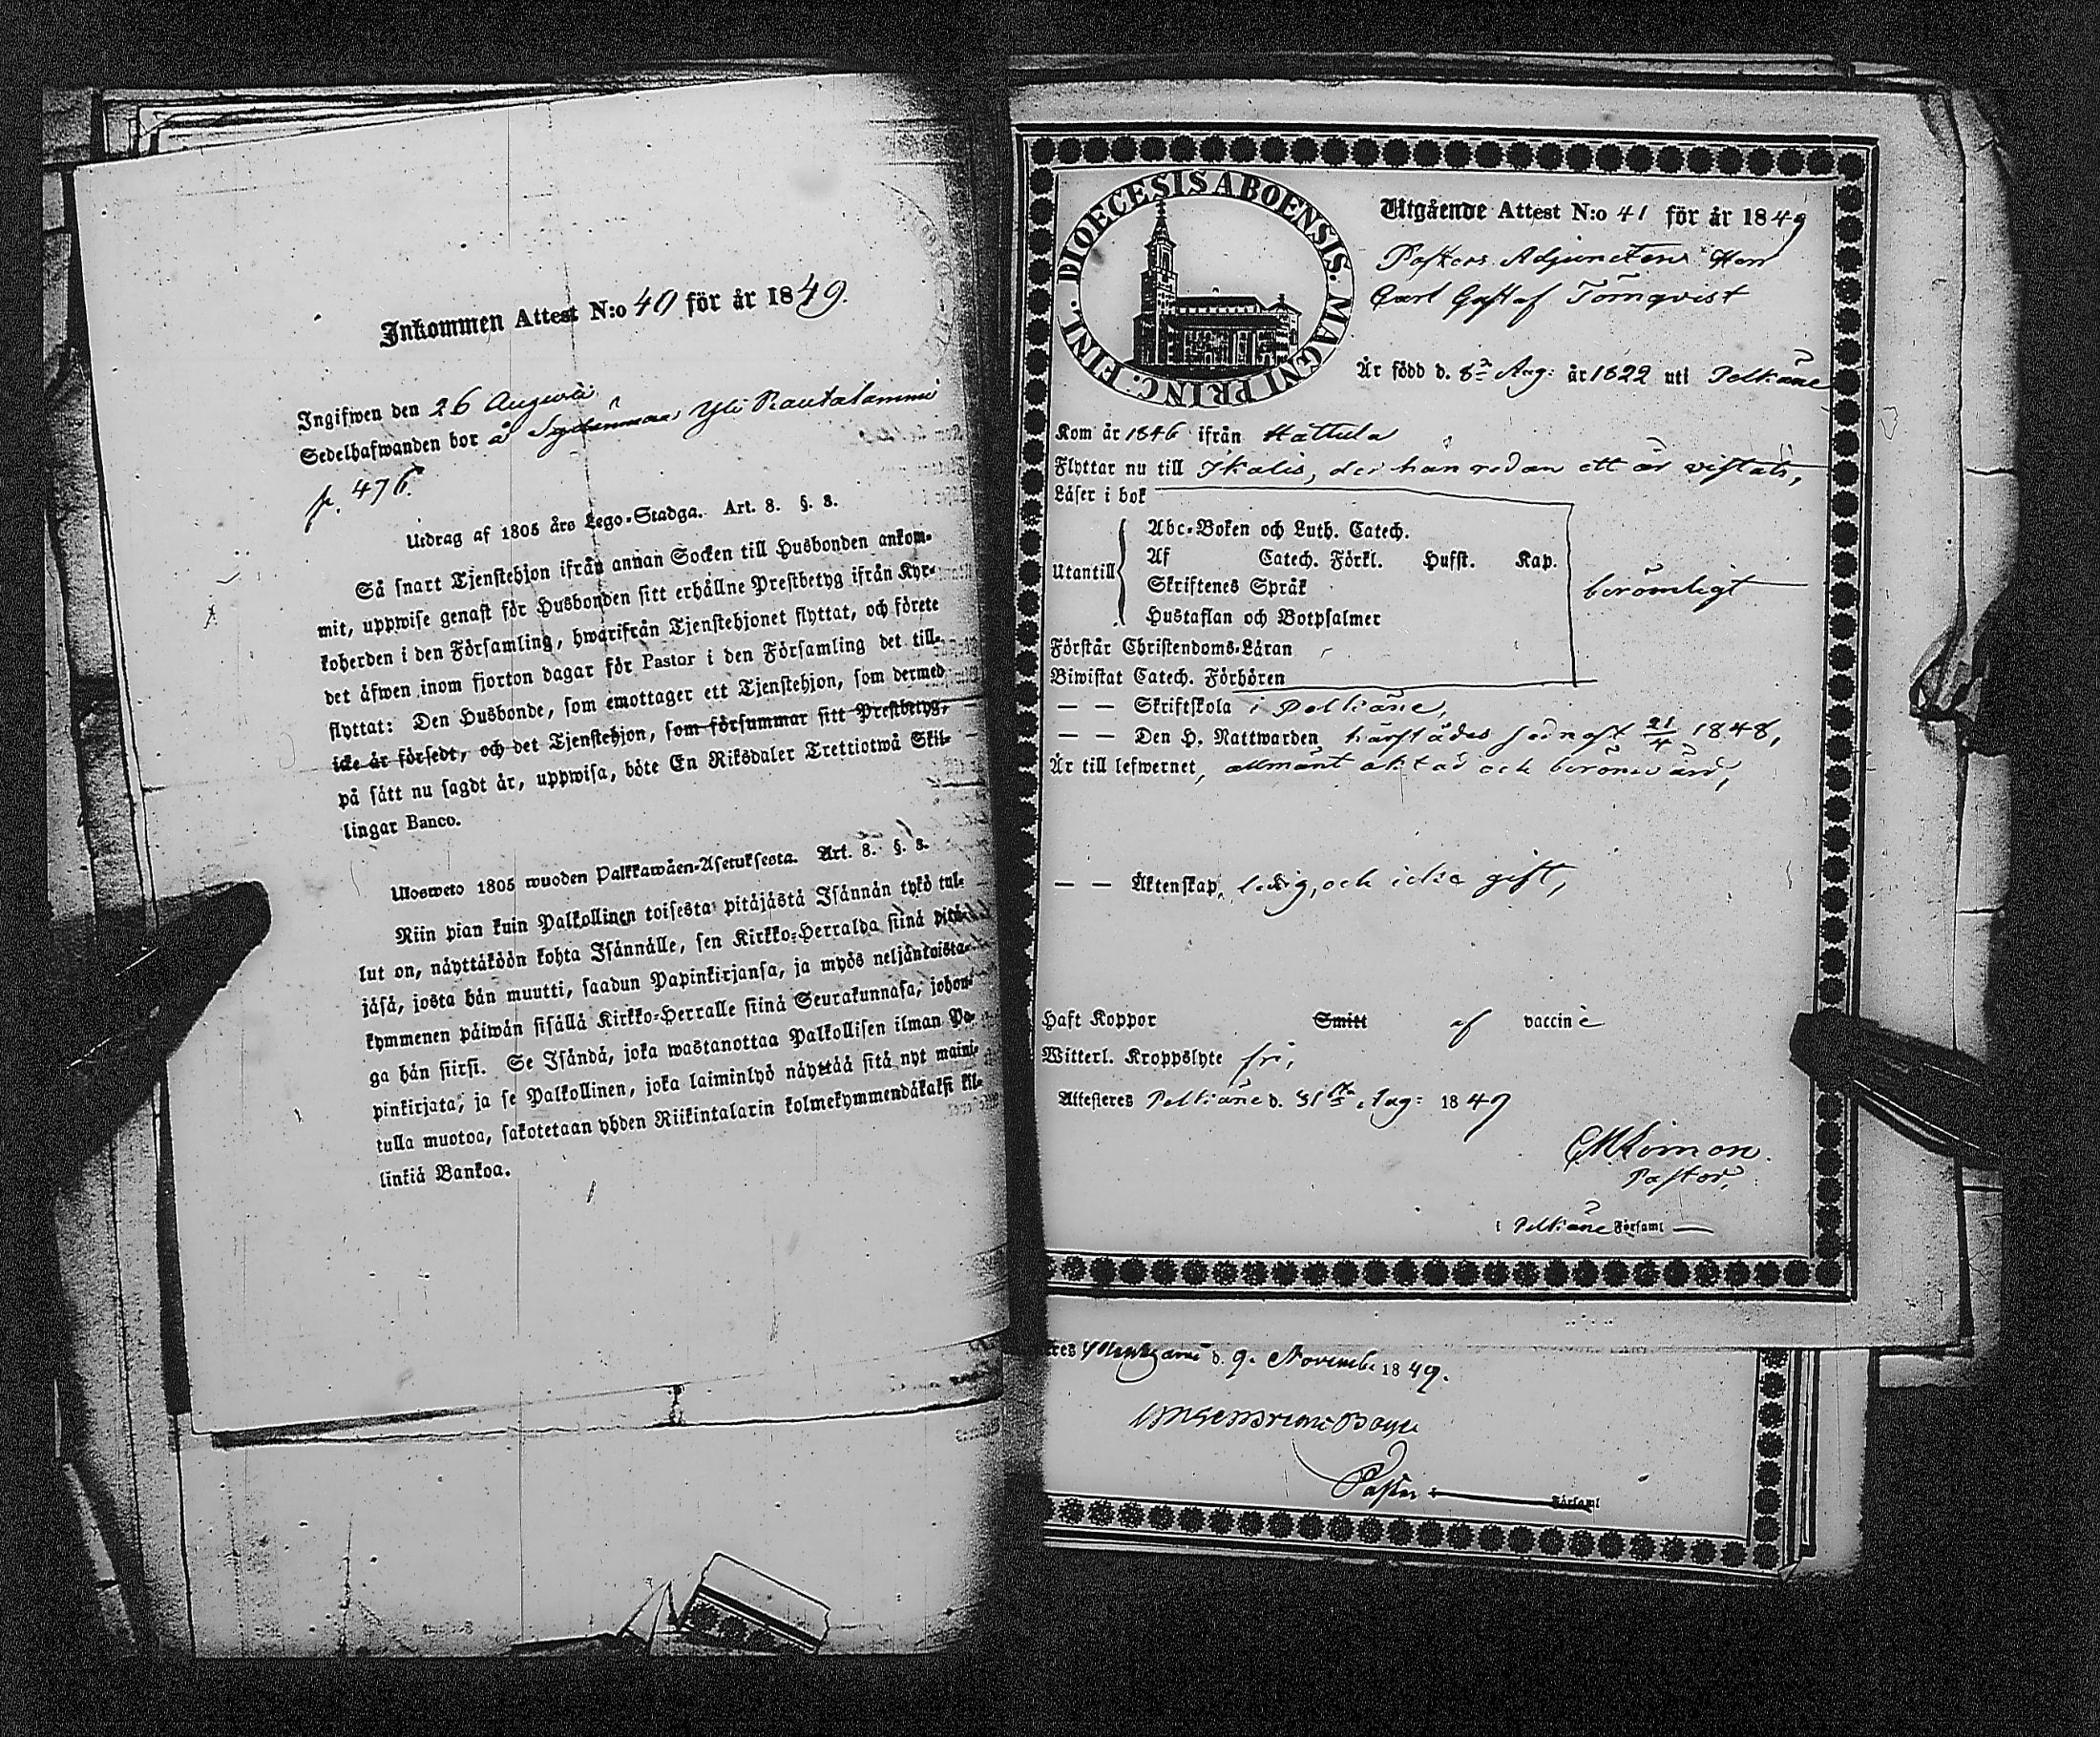 Inkommen Attest N:o 40 för år 1849.
Ingifwen den 26 Augusti
Sedelhafwanden bor å Yli Rautalammi
p. 476.
Utdrag af 1805 års Lego-Stadga. Art. 8. §. 3.
Så snart Tjenstehjon ifrån annan Socken till Husbonden ankom-
mit, uppwise genast för Husbonden sitt erhållne Prestbetyg ifrån Kyr-
koherden i den Församling, hwarifrån Tjenstehjonet flyttat, och förete
det äfwen inom fjorton dagar för Pastor i den Församling det till-
flyttat: Den Husbonde, som emottager ett Tjenstehjon, som dermed
icke är försedt, och det Tjenstehjon, som försummar sitt Prestbetyg,
på sätt nu sagdt är, uppwisa, böte En Riksdaler Trettiotwå Skil-
lingar Banco.
Ulosweto 1805 wuoden Palkkawäen-Asetuksesta. Art. 8. §. 3.
Niin pian kuin Palkollinen toisesta pitäjästä Isännän tykö tul-
lut on, näyttäköön kohta Isännälle, sen Kirkko-Herralda siinä pitä-
jäsä, josta hän muutti, saadun Papinkirjansa, ja myös neljäntoista-
kymmenen päiwän sisällä Kirkko-Herralle siinä Seurakunnasa, johon-
ga hän siirsi. Se Isändä, joka wastanottaa Palkollisen ilman Pa-
pinkirjata, ja se Palkollinen, joka laiminlyö näyttää sitä nyt maini-
tulla muotoa, sakotetaan yhden Riikintalarin kolmekymmendäkaksi kil-
linkiä Bankoa.
FINL. DIOECESIS ABOENSIS. MAGNI PRINC:
Utgående Attest N:o 41 för år 1849
Pastors Adjuncten Herr
Carl Gustaf Törnqvist
Är född d. 8de Aug: år 1822 uti Pelkäne
Kom år 1846 ifrån Hattula
Flyttar nu till Ikalis, der han redan ett år vistats,
Läser i bok
Utantill
Abc-Boken och Luth. Catech.
Af Catech. Förkl. Hufst. Kap.
Skriftenes Språk
Hustaflan och Botpsalmer
berömligt
Förstår Christendoms-Läran
Biwistat Catech. Förhören
— — Skriftskola i Pelkäne,
— — Den H. Nattwarden härstädes sednast 21/4 1848,
Är till lefwernet, allmänt aktad och berömvärd,
— — Äktenskap, ledig, och icke gift,
Haft Koppor Smitt af vaccine
Witterl. Kroppslyte fri,
Attesteres Pelkäne d. 31 Aug: 1849
CM Limon.
Pastor,
i Pelkäne Församl
d. 9. November 1849.
Pastor
Församl